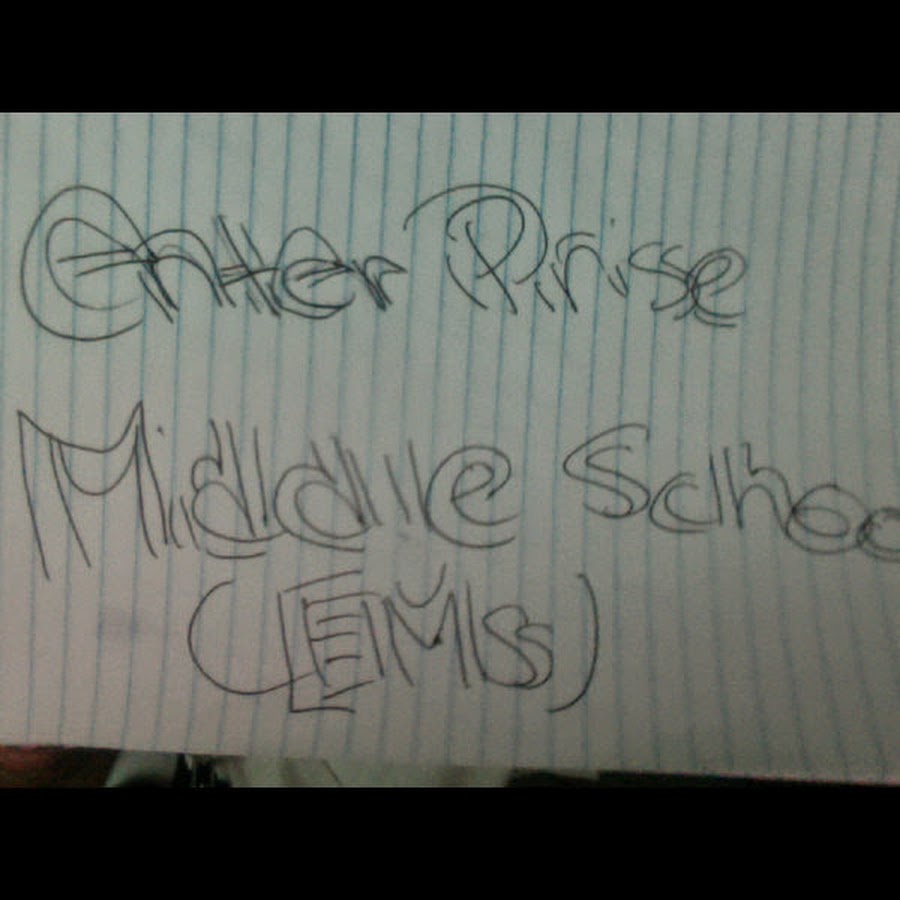 Enter Prise
Middle Schoo
(EMS)